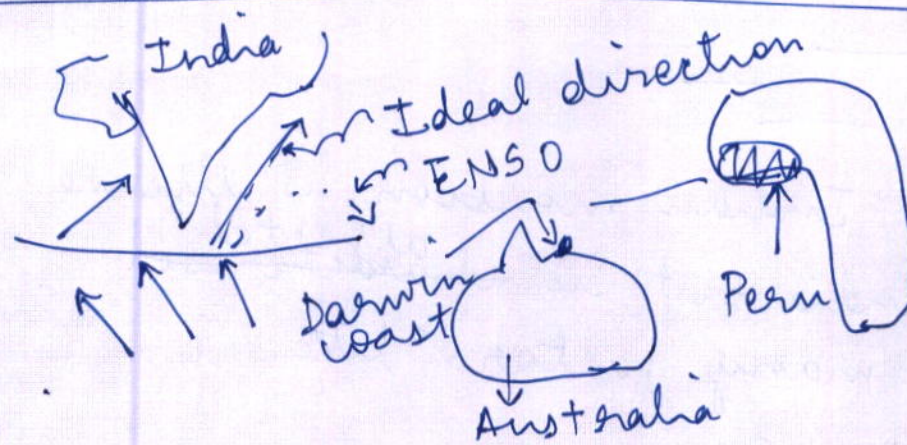 India
Ideal direction
ENSO
Darwin
coast
Peru
Australia